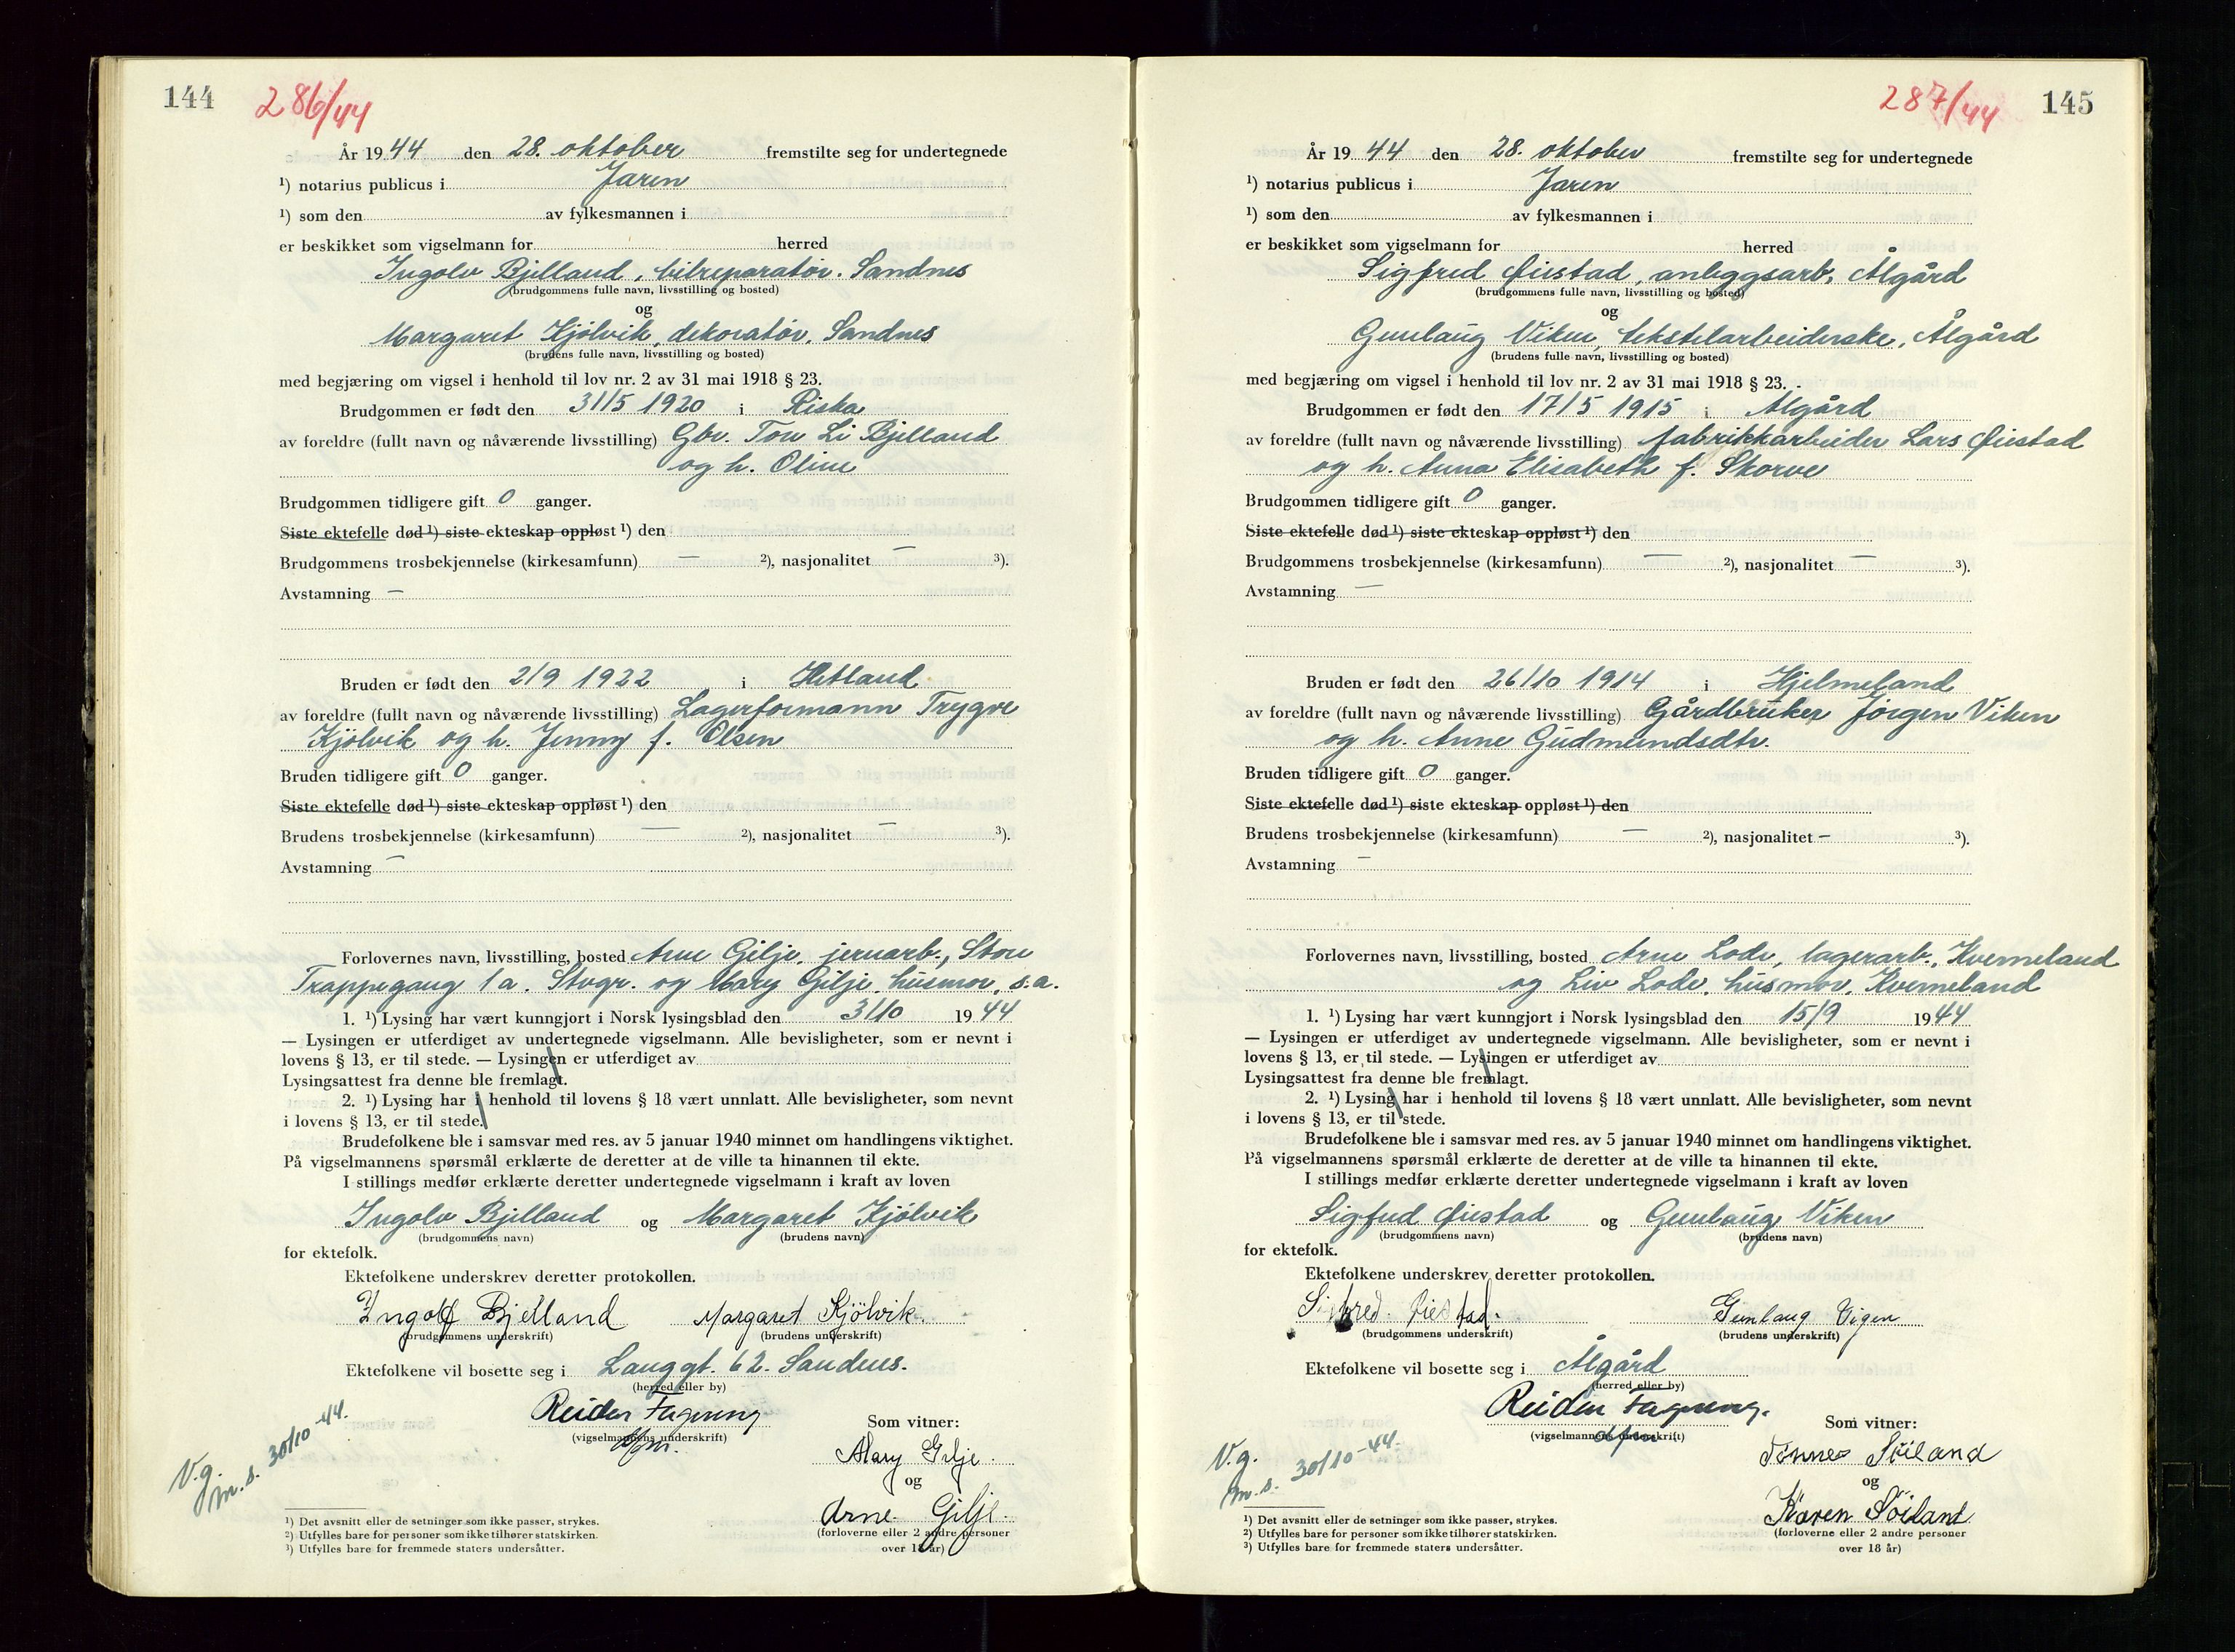 144
286/44
År 19 44 den 28. oktober fremstilte seg for undertegnede
¹) notarius publicus i Jæren
¹) som den av fylkesmannen i
er beskikket som vigselmann for herred
Ingolv Bjelland, bilreparatör. Sandnes
(brudgommens fulle navn, livsstilling og bosted)
og
Margaret Kjölvik, dekoratör, Sandnes
(brudens fulle navn, livsstilling og bosted)
med begjæring om vigsel i henhold til lov nr. 2 av 31 mai 1918 § 23.
Brudgommen er født den 31/5 1920 i Riska
av foreldre (fullt navn og nåværende livsstilling) Gbr. Tou Li Bjelland
og h. Oline
Brudgommen tidligere gift 0 ganger.
Siste ektefelle død ¹) siste ekteskap oppløst ¹) den
Brudgommens trosbekjennelse (kirkesamfunn) — ²), nasjonalitet — ³).
Avstamning —
Bruden er født den 2/9 1922 i Hetland
av foreldre (fullt navn og nåværende livsstilling) Lagerformann Trygve
Kjölvik og h. Jenny f. Olsen
Bruden tidligere gift 0 ganger.
Siste ektefelle død ¹) siste ekteskap oppløst ¹) den
Brudens trosbekjennelse (kirkesamfunn) — ²), nasjonalitet — ³).
Avstamning —
Forlovernes navn, livsstilling, bosted Arne Gilje, jernarb., Store
Trappegang 1a. Stvgr. og Mary Gilje, husmor, s.a.
1. ¹) Lysing har vært kunngjort i Norsk lysingsblad den 3/10 19 44
— Lysingen er utferdiget av undertegnede vigselmann. Alle bevisligheter, som er nevnt i
lovens § 13, er til stede. — Lysingen er utferdiget av
Lysingsattest fra denne ble fremlagt.
2. ¹) Lysing har i henhold til lovens § 18 vært unnlatt. Alle bevisligheter, som nevnt
i lovens § 13, er til stede.
Brudefolkene ble i samsvar med res. av 5 januar 1940 minnet om handlingens viktighet.
På vigselmannens spørsmål erklærte de deretter at de ville ta hinannen til ekte.
I stillings medfør erklærte deretter undertegnede vigselmann i kraft av loven
Ingolv Bjelland og Margaret Kjölvik
(brudgommens navn) (brudens navn)
for ektefolk.
Ektefolkene underskrev deretter protokollen.
Ingolf Bjelland Margaret Kjölvik.
(brudgommens underskrift) (brudens underskrift)
Ektefolkene vil bosette seg i Langgt. 62. Sandnes.
(herred eller by)
Reidar Fagerweg
(vigselmannens underskrift)
Som vitner:
Mary Gilje.
og
Arne Gilje.
(forloverne eller 2 andre personer
over 18 år)
V.g.
m.s. 30/10-44.
¹) Det avsnitt eller de setninger som ikke passer, strykes.
²) Utfylles bare for personer som ikke tilhører statskirken.
³) Utfylles bare for fremmede staters undersåtter.
287/44
145
År 19 44 den 28. oktober fremstilte seg for undertegnede
¹) notarius publicus i Jæren
¹) som den av fylkesmannen i
er beskikket som vigselmann for herred
Sigfred Øiestad, anleggsarb, Ålgård
(brudgommens fulle navn, livsstilling og bosted)
og
Gunlaug Viken, tekstilarbeiderske, Ålgård
(brudens fulle navn, livsstilling og bosted)
med begjæring om vigsel i henhold til lov nr. 2 av 31 mai 1918 § 23.
Brudgommen er født den 17/5 1915 i Ålgård
av foreldre (fullt navn og nåværende livsstilling) fabrikkarbeider Lars Øiestad
og h. Anna Elisabeth f. Skorve
Brudgommen tidligere gift 0 ganger.
Siste ektefelle død ¹) siste ekteskap oppløst ¹) den
Brudgommens trosbekjennelse (kirkesamfunn) — ²), nasjonalitet — ³).
Avstamning —
Bruden er født den 26/10 1914 i Hjelmeland
av foreldre (fullt navn og nåværende livsstilling) Gårdbruker Jörgen Viken
og h. Anne Gudmundsdtr.
Bruden tidligere gift 0 ganger.
Siste ektefelle død ¹) siste ekteskap oppløst ¹) den
Brudens trosbekjennelse (kirkesamfunn) — ²), nasjonalitet — ³).
Avstamning —
Forlovernes navn, livsstilling, bosted Arne Lode, lagerarb., Kverneland
og Liv Lode, husmor, Kverneland
1. ¹) Lysing har vært kunngjort i Norsk lysingsblad den 15/9 19 44
— Lysingen er utferdiget av undertegnede vigselmann. Alle bevisligheter, som er nevnt i
lovens § 13, er til stede. — Lysingen er utferdiget av
Lysingsattest fra denne ble fremlagt.
2. ¹) Lysing har i henhold til lovens § 18 vært unnlatt. Alle bevisligheter, som nevnt
i lovens § 13, er til stede.
Brudefolkene ble i samsvar med res. av 5 januar 1940 minnet om handlingens viktighet.
På vigselmannens spørsmål erklærte de deretter at de ville ta hinannen til ekte.
I stillings medfør erklærte deretter undertegnede vigselmann i kraft av loven
Sigfred Øiestad og Gunlaug Viken
(brudgommens navn) (brudens navn)
for ektefolk.
Ektefolkene underskrev deretter protokollen.
Sigfred. Øiestad. Gunlaug Vigen
(brudgommens underskrift) (brudens underskrift)
Ektefolkene vil bosette seg i Ålgård
(herred eller by)
Reidar Fagerweg.
(vigselmannens underskrift)
Som vitner:
Tönnes Söiland
og
Karen Söiland
(forloverne eller 2 andre personer
over 18 år)
V.g.
m.s. 30/10-44.
¹) Det avsnitt eller de setninger som ikke passer, strykes.
²) Utfylles bare for personer som ikke tilhører statskirken.
³) Utfylles bare for fremmede staters undersåtter.